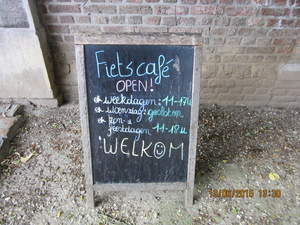 Fietscafé
OPEN!
weekdagen: 11-17u
woensdag: gesloten
zon- &
feestdagen 11-18u
WELKOM
13:30